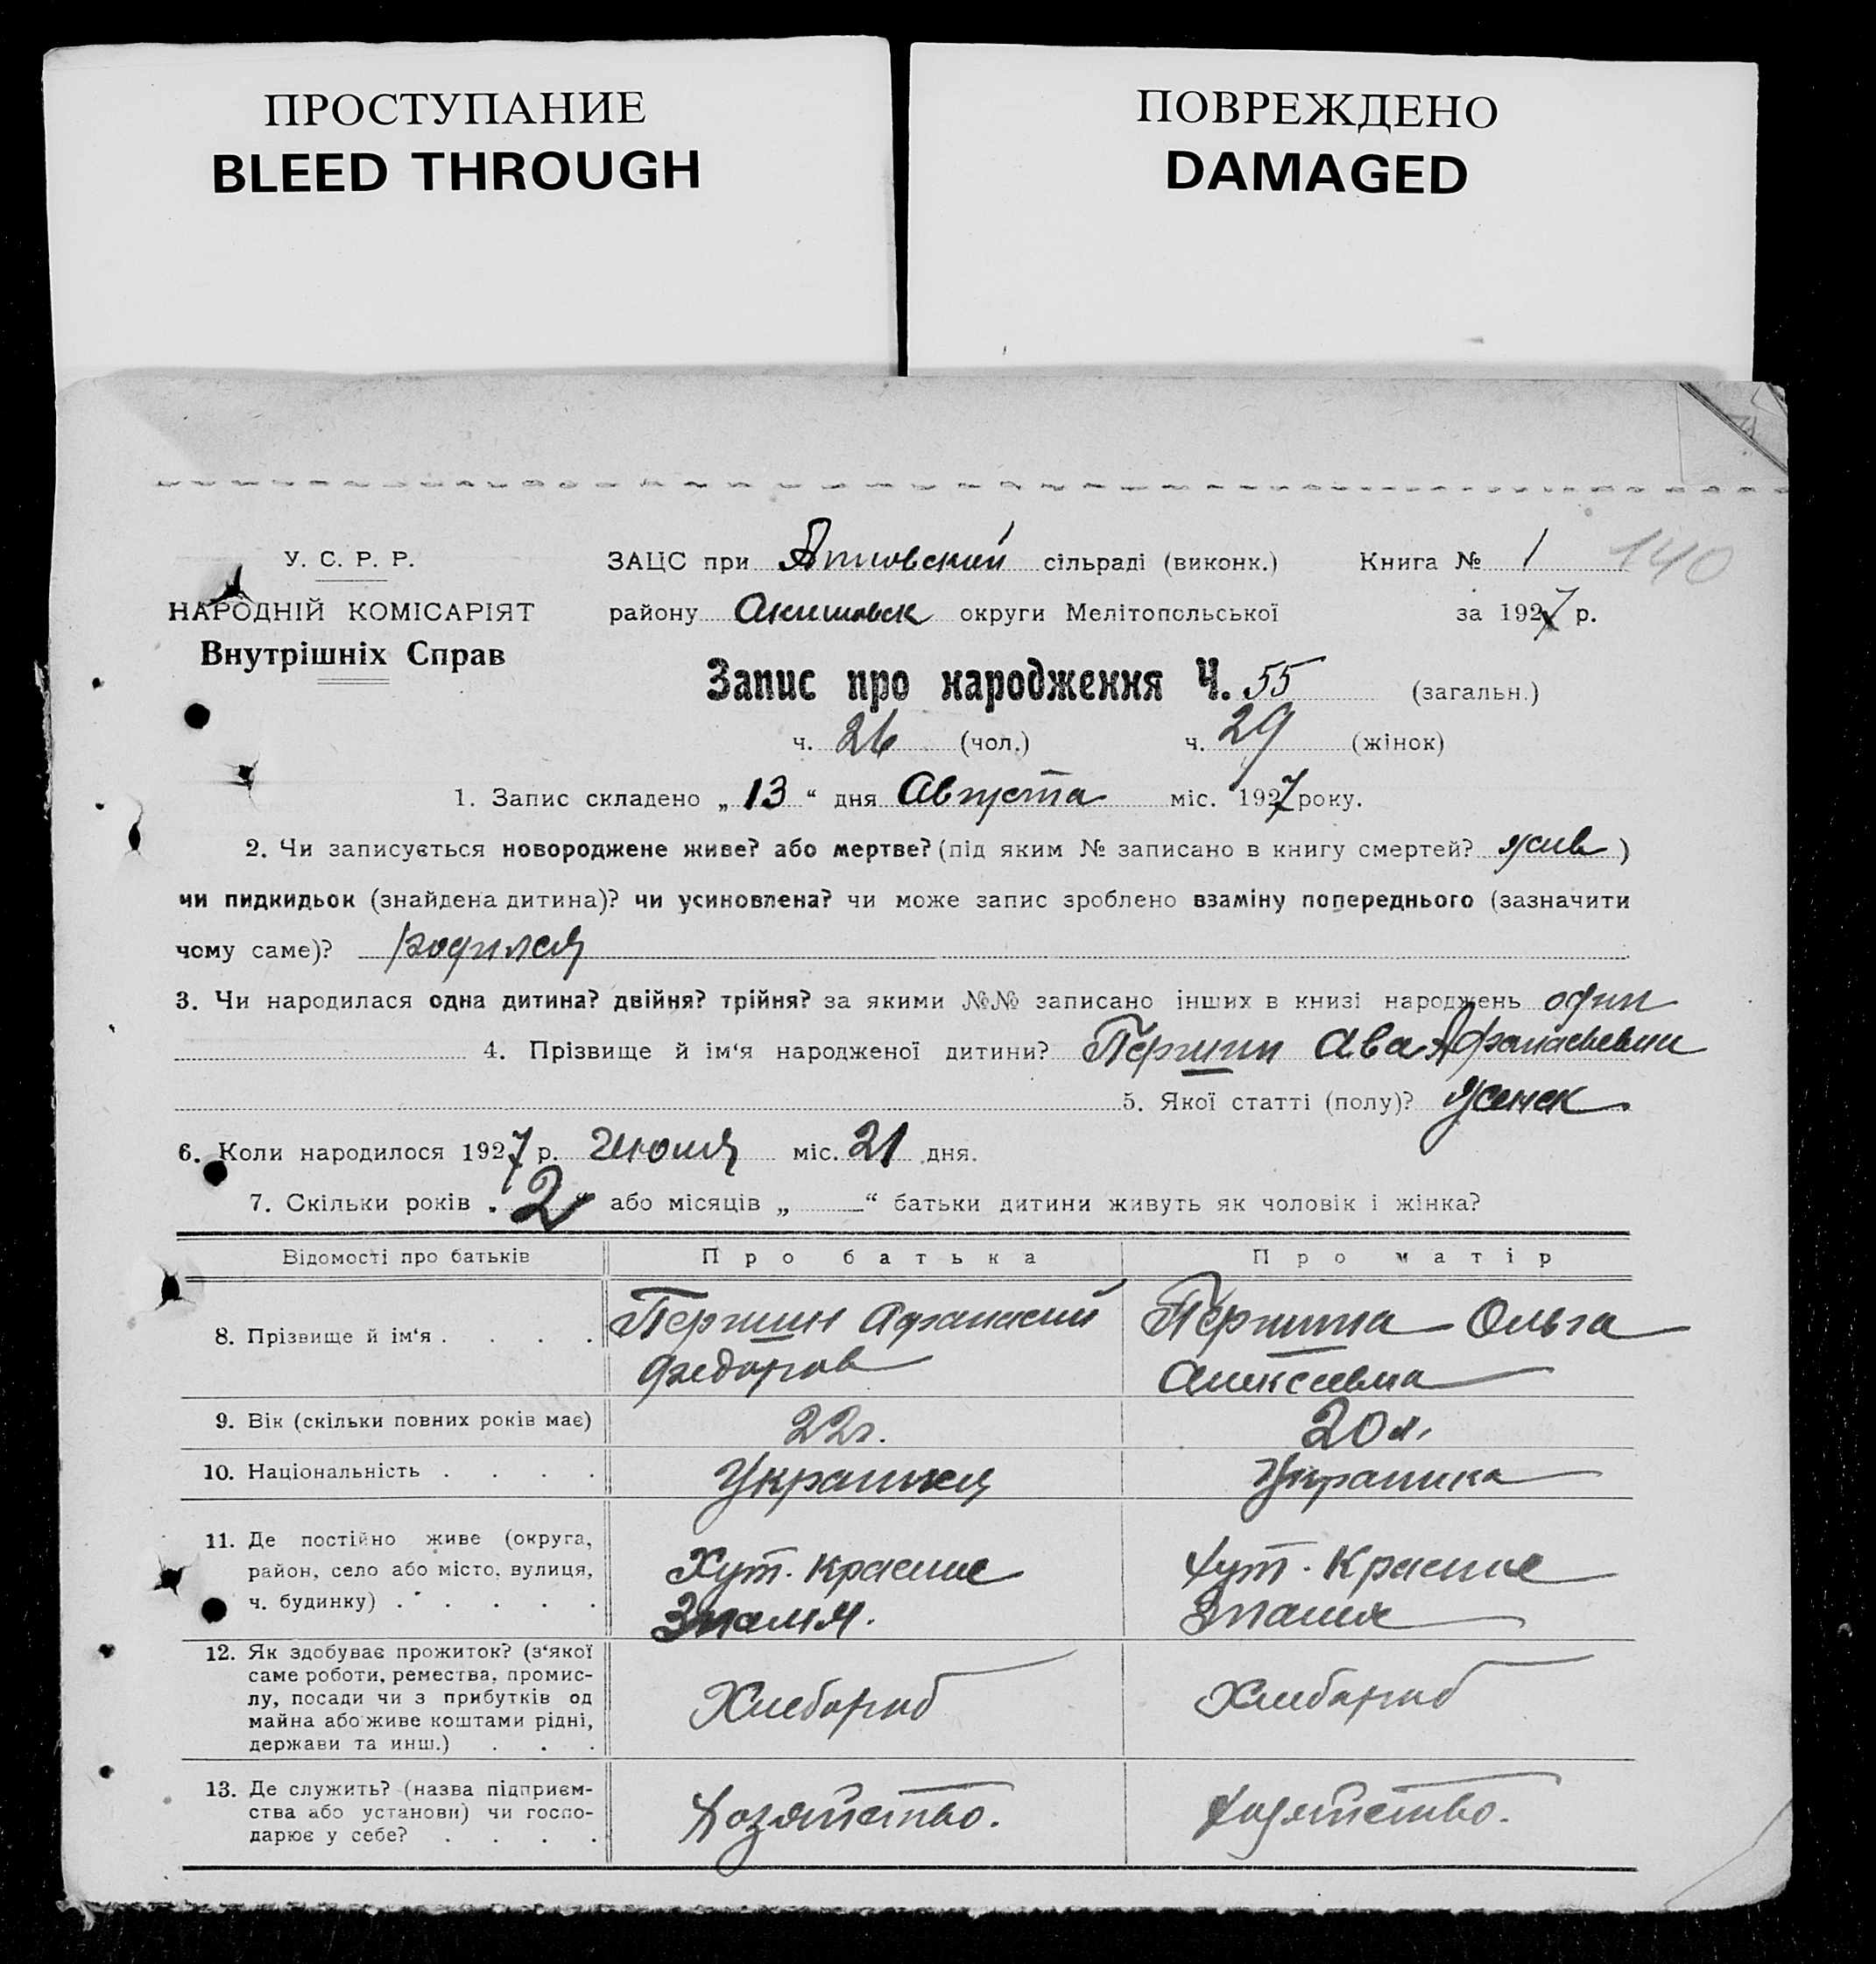 ПРОСТУПАНИЕ
BLEED THROUGH
ПОВРЕЖДЕНО
DAMAGED
У. С. Р. Р.
НАРОДНІЙ КОМІСАРІЯТ
Внутрішніх Справ
ЗАЦС при сільраді (виконк.) Книга № 1 140
району Акимовск округи Мелітопольської за 1927 р.
Запис про народження Ч. 55 (загальн.)
ч. 26 (чол.) ч. 29 (жінок)
1. Запис складено „ 13 “ дня Августа міс. 1927 року.
2. Чи записується новороджене живе? або мертве? (під яким № записано в книгу смертей? жив )
чи пидкидьок (знайдена дитина)? чи усиновлена? чи може запис зроблено взаміну попереднього (зазначити
чому саме)? родился
3. Чи народилася одна дитина? двійня? трійня? за якими №№ записано інших в книзі народжень один
4. Прізвище й ім‘я народженої дитини? Першин Ава Афанасьевин
5. Якої статті (полу)? женск.
6. Коли народилося 1927 р. міс. 21 дня.
7. Скільки років „ 2 “ або місяців „ — “ батьки дитини живуть як чоловік і жінка?
Відомості про батьків Про батька Про матір
8. Прізвище й ім‘я . . . . Першин Афанасий Першина Ольга
Федоров Алексеевна
9. Вік (скільки повних років має) 22г. 20л.
10. Національність . . . . Украинец Украинка
11. Де постійно живе (округа,
район, село або місто, вулиця,
ч. будинку) . . . . .
Хут. Красные Хут. Красные
Знамя. Знамя
12. Як здобуває прожиток? (з‘якої
саме роботи, ремества, промис-
лу, посади чи з прибутків од
майна або живе коштами рідні,
держави та инш.) . . .
Хлебороб Хлебороб
13. Де служить? (назва підприєм-
ства або установи) чи госпо-
дарює у себе? . . . .
Хозяйство. Хозяйство.